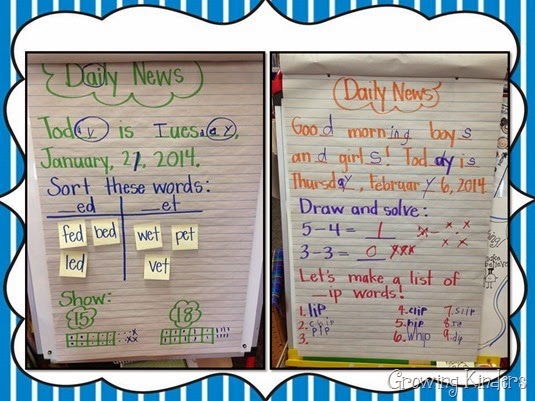 Daily News
Today is Tuesday,
January, 21, 2014.
Sort these words:
_ed _et
fed bed wet pet
led vet
Show:
15 18
Daily News
Good morning boys
and girls! Today is
Thursday, February 6, 2014.
Draw and solve:
5-4= 1
3-3= 0
Let's make a list of
_ip words!
1. lip 4. clip 7. slip
2. chip 5. hip 8. rip
3. 6. whip 9. dip
Growing Kinders